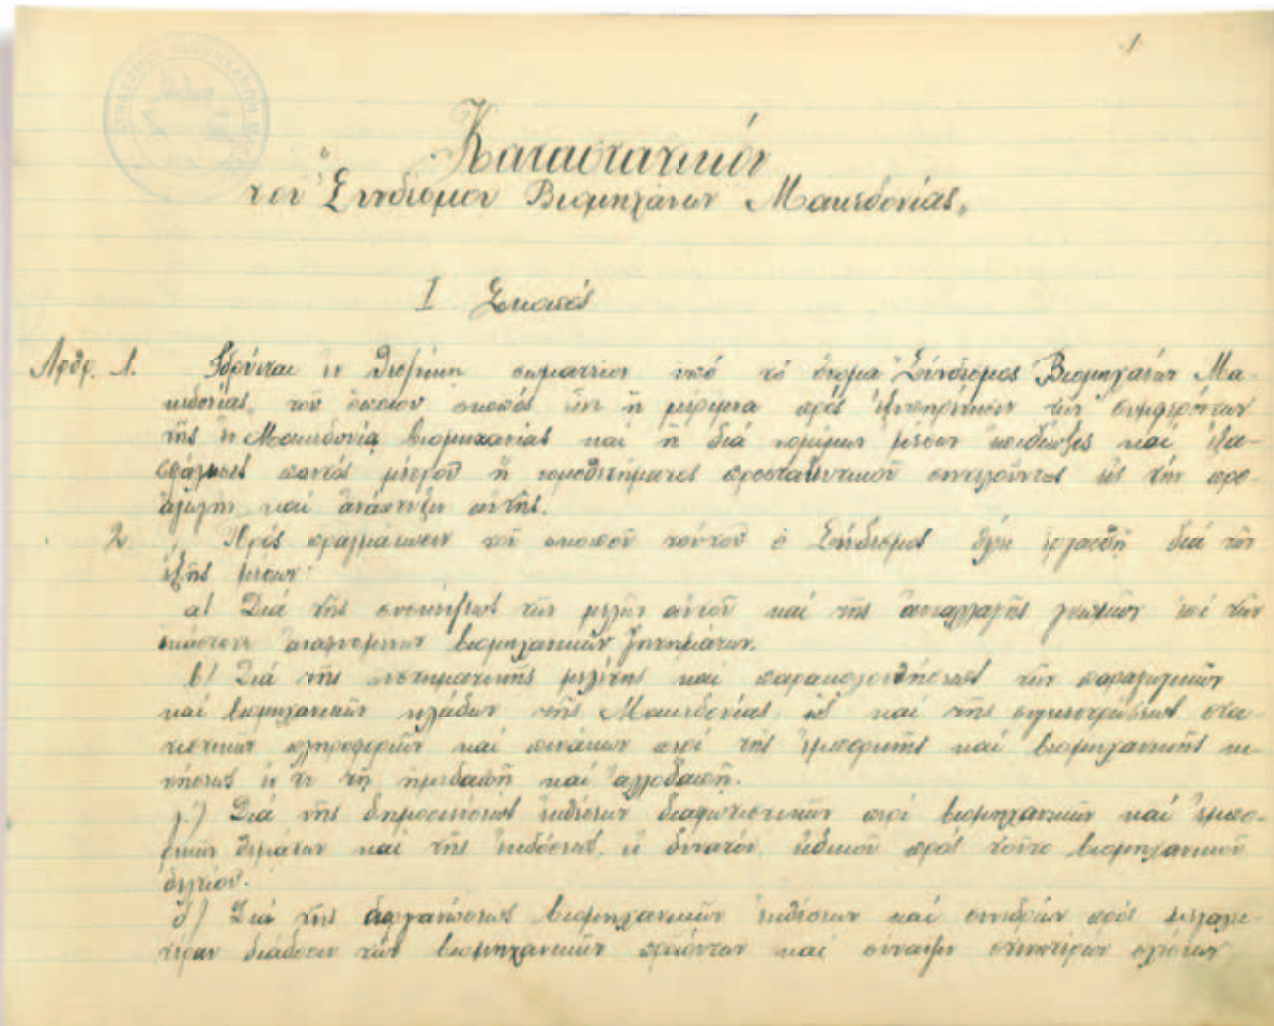 1
Καταστατικόν
τοῦ "Συνδέσμου Βιομηχάνων Μακεδονίας„
I Σκοπός
Ἄρθρ. 1. Ἱδρύεται ἐν Θεσ/νίκῃ σωματεῖον ὑπό τό ὄνομα "Σύνδεσμος Βιομηχάνων Μα-
κεδονίας„ τοῦ ὁποίου σκοπός εἶνε ἡ μέριμνα πρός ἐξυπηρέτησιν τῶν συμφερόντων
τῆς ἐν Μακεδονίᾳ βιομηχανίας καί ἡ διά νομίμων μέσων ἐπιδίωξις καί ἐξα-
σφάλισις παντός μέτρου ἤ νομοθετήματος προστατευτικοῦ συντελοῦντος εἰς τήν προ-
αγωγήν καί ἀνάπτυξιν αὐτῆς.
2. Πρός πραγμάτωσιν τοῦ σκοποῦ τούτου ὁ Σύνδεσμος θέλει ἐργασθῆ διά τῶν
ἑξῆς μέσων:
α) Διά τῆς συσκέψεως τῶν μελῶν αὐτοῦ καί τῆς ἀνταλλαγῆς γνωμῶν ἐπί τῶν
ἑκάστοτε ἀναφυομένων βιομηχανικῶν ζητημάτων.
β) Διά τῆς συστηματικῆς μελέτης καί παρακολουθήσεως τῶν παραγωγικῶν
καί βιομηχανικῶν κλάδων τῆς Μακεδονίας, ὡς καί τῆς συγκεντρώσεως στα-
τιστικῶν πληροφοριῶν καί πινάκων περί τῆς ἐμπορικῆς καί βιομηχανικῆς κι-
νήσεως ἔν τε τῇ ἡμεδαπῇ καί ἀλλοδαπῇ.
γ) Διά τῆς δημοσιεύσεως ἐκθέσεων διαφωτιστικῶν περί βιομηχανικῶν καί ἐμπο-
ρικῶν θεμάτων καί τῆς ἐκδόσεως, εἰ δυνατόν, εἰδικοῦ πρός τοῦτο βιομηχανικοῦ
δελτίου.
δ) Διά τῆς διοργανώσεως βιομηχανικῶν ἐκθέσεων καί συνεδρίων πρός μεγαλει-
τέραν διάδοσιν τῶν βιομηχανικῶν προϊόντων καί σύναψιν στενωτέρων σχέσεων